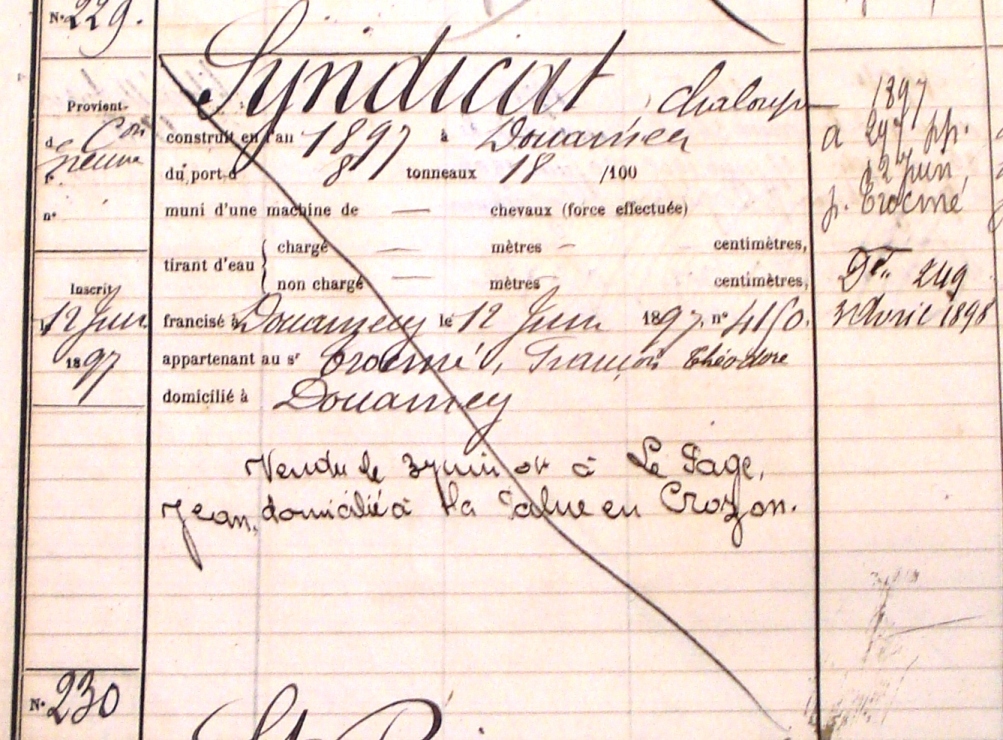 N° 229.
Syndicat, chaloupe
Provient-
construit en l'an 1897 à Douarnenez
neuve
du port d 8 tonneaux 18 /100
n°
muni d'une machine de — chevaux (force effectuée)
tirant d'eau
chargé — mètres — centimètres,
non chargé — mètres centimètres,
Inscrit
12 Juin
1897
francisé à Douarnenez le 12 Juin 1897, n° 4150.
appartenant au sr Trocmé, François Théodore
domicilié à Douarnenez
Vendu le 3 juin à Le Page,
Jean, domicilié à la Palue en Crozon.
1897
a 297 pp.
12 Juin,
p. Trocmé
249
3 Avril 1898
N° 230
St